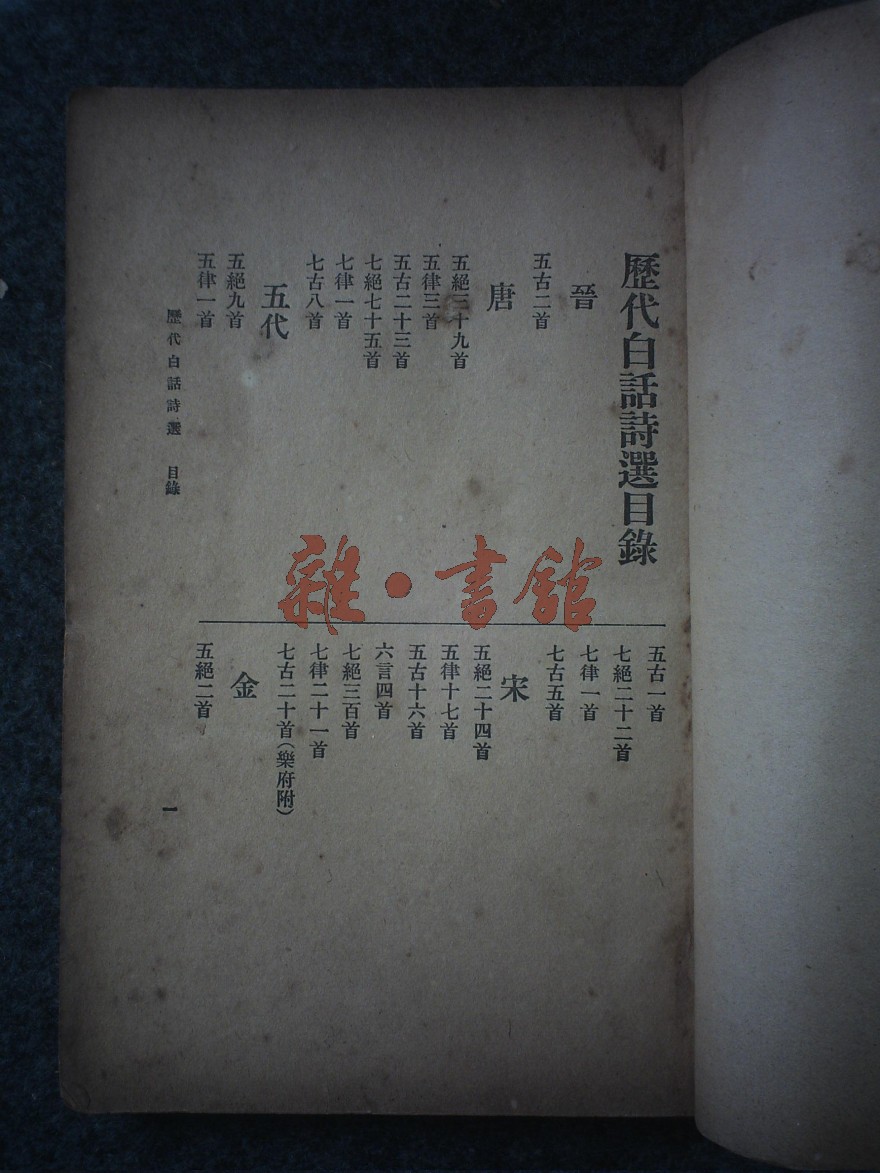 歷代白話詩選目錄
晉
五古二首
唐
五絕三十九首
五律三首
五古二十三首
七絕七十五首
七律一首
七古八首
五代
五絕九首
五律一首
五古一首
七絕二十二首
七律一首
七古五首
宋
五絕二十四首
五律十七首
五古十六首
六言四首
七絕三百首
七律二十一首
七古二十首(樂府附)
金
五絕二首
歷代白話詩選 目錄
一
雜·書館